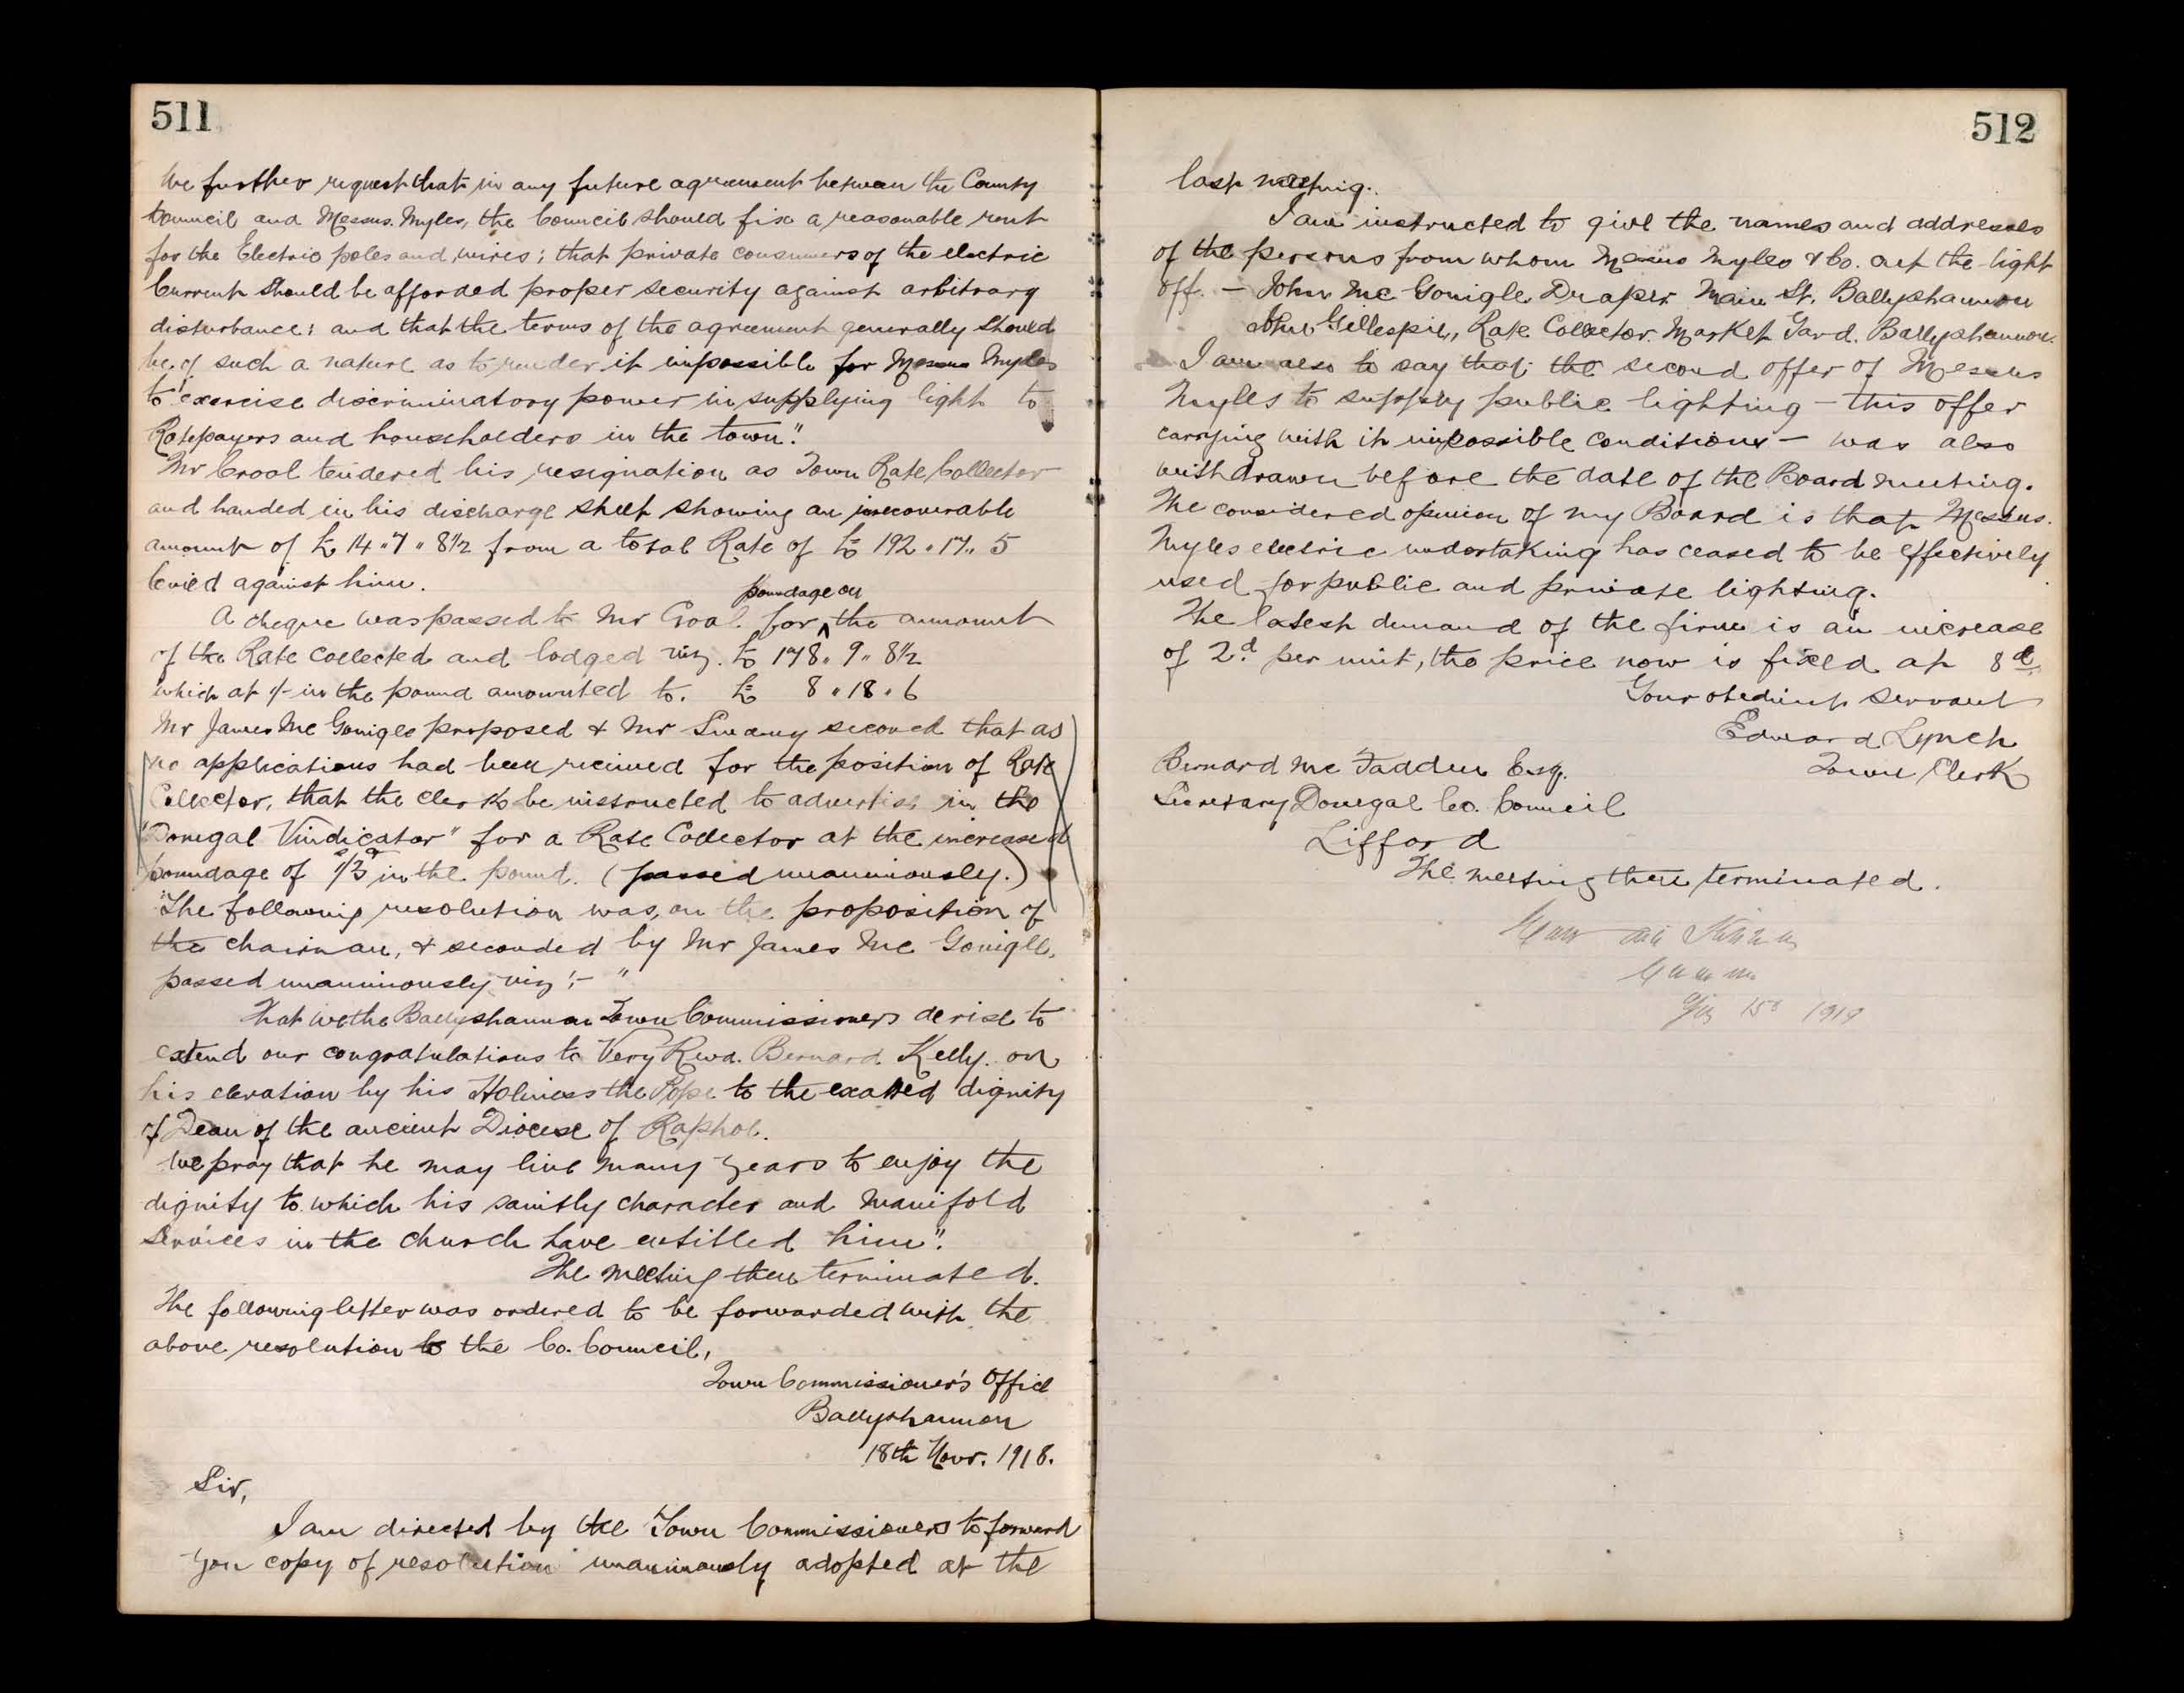 511
We further request that in any future agreement between the County
Council and Messrs. Myles, the Council should fix a reasonable rent
for the Electric poles and wires; that private consumers of the electric
Current should be afforded proper security against arbitrary
disturbance; and that the terms of the agreement generally should
be of such a nature as to render it impossible for Messrs Myles
to exercise discriminatory power in supplying light to
Ratepayers and householders in the town".
Mr Crool tendered his resignation as Town Rate Collector
and handed in his discharge sheet showing an irrecoverable
amount of £ 14 " 7 " 8½ from a total Rate of £ 192 " 17 " 5
levied against him.
poundage on
A cheque was passed to Mr Crool for ^ the amount
of the Rate Collected and lodged viz. £ 178 " 9 " 8½
which at 1/- in the pound amounted to. £ 8 " 18 " 6
Mr James Mc Gonigle proposed & Mr Sweeny second that as
no applications had been received for the position of Rate
Collector, that the clerk be instructed to advertise in the
"Donegal Vindicator" for a Rate Collector at the increased
poundage of 1s/3d in the pound. (passed unanimously.)
The following resolution was, on the proposition of
the chairman, & seconded by Mr James Mc Gonigle,
passed unanimously viz:- "
That we the Ballyshannon Town Commissioners derise to
extend our congratulations to Very Revd. Bernard Kelly. on
his elevation by his Holiness the Pope to the exalted dignity
of Dean of the ancient Diocese of Raphoe.
We pray that he may live many years to enjoy the
dignity to which his saintly character and manifold
Services in the church have entitled him".
The meeting then terminated.
The following letter was ordered to be forwarded with the
above resolution to the Co. Council,
Town Commissioner's Office
Ballyshannon
18th Novr. 1918.
Sir,
I am directed by the Town Commissioners to forward
you copy of resolution unanimously adopted at the
512
last meeting.
I am instructed to give the names and addresses
of the persons from whom Messrs Myles & Co. cut the light
off. — John Mc Gonigle Draper Main St. Ballyshannon
John Gillespie, Rate Collector. Market Yard. Ballyshannon.
I am also to say that the second offer of Messrs
Myles to supply public lighting — this offer
carrying with it impossible conditions — was also
withdrawn before the date of the Board meeting.
The considered opinion of my Board is that Messrs.
Myles electric undertaking has ceased to be effectively
used for public and private lighting.
The latest demand of the firm is an increase
of 2d. per unit, the price now is fixed at 8d.
Your obedient servant
Edward Lynch
Town Clerk
Bernard Mc Fadden Esq.
Secretary Donegal Co. Council
Lifford
The meeting then terminated.
15 1919